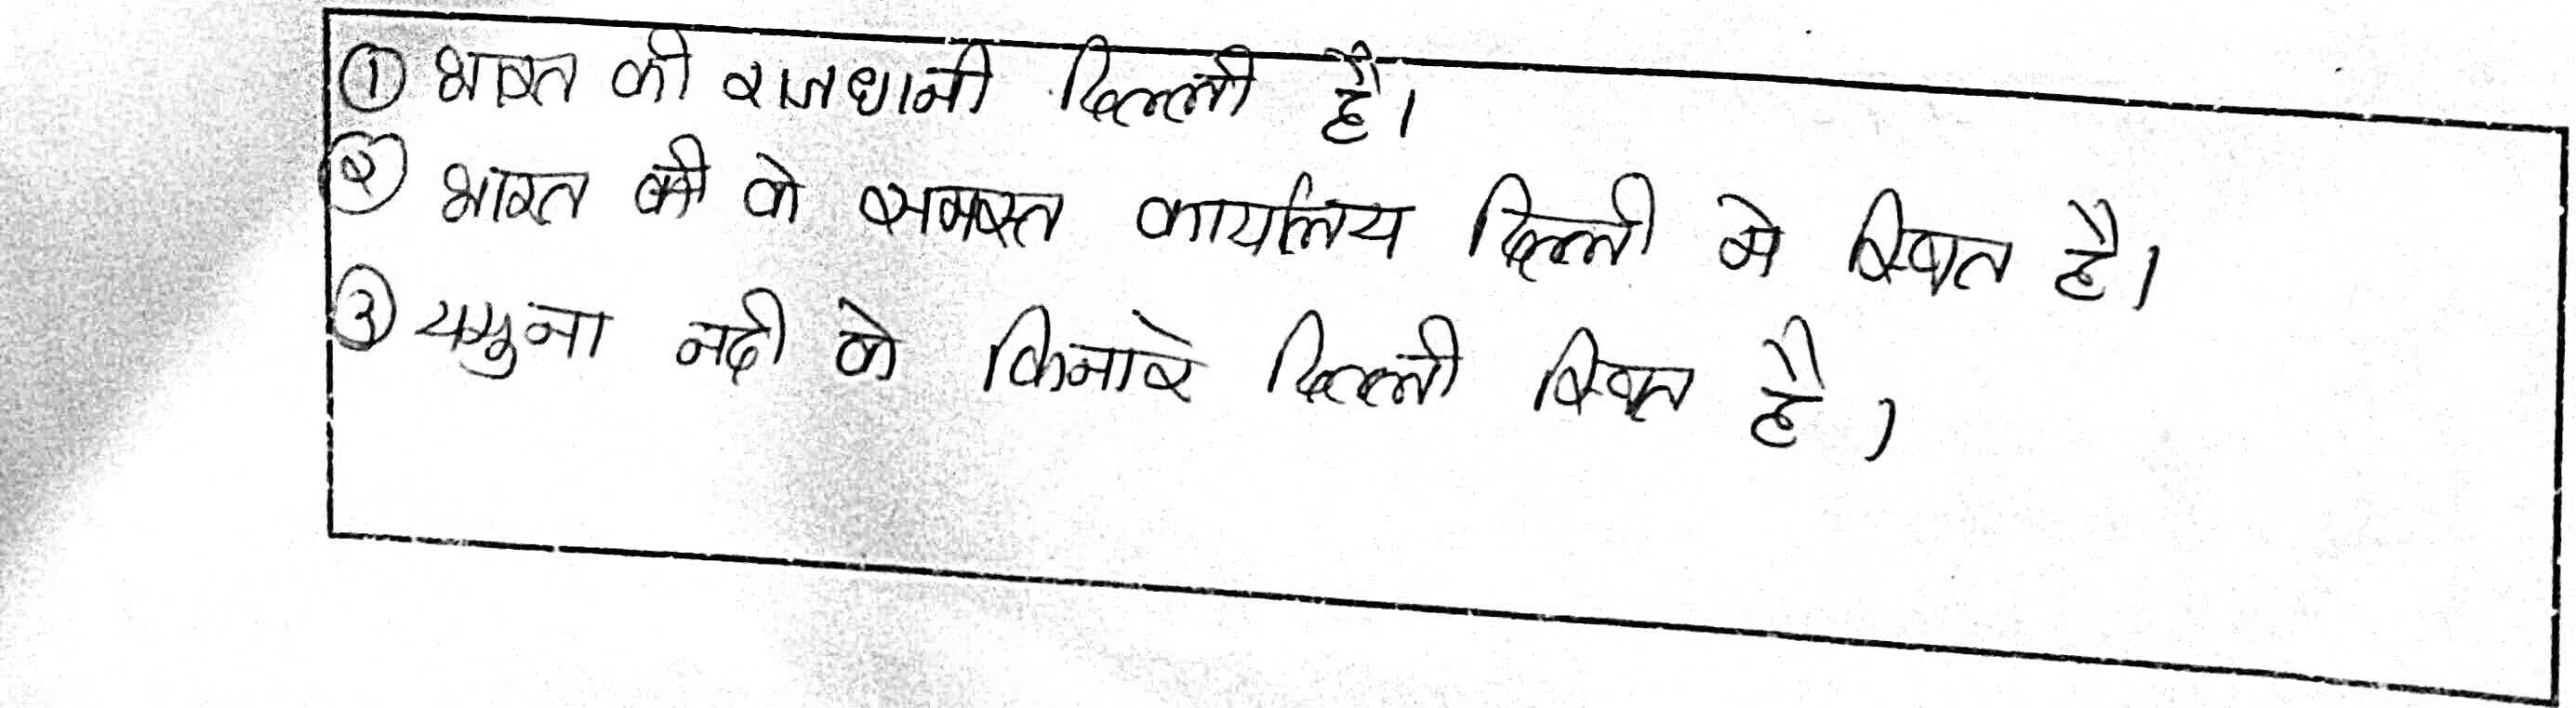 ① भारत की राजधानी दिल्ली है।
② भारत की के समस्त कार्यालय दिल्ली मे स्थित है।
③ यमुना नदी के किनारे दिल्ली स्थित है।